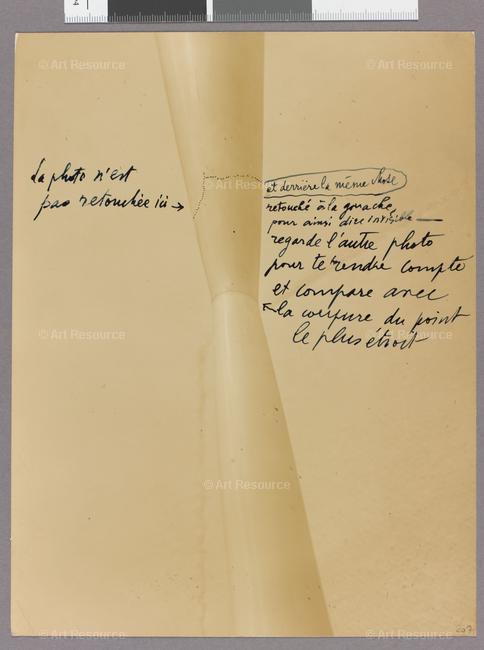 La photo n'est
pas retouchée ici →
et derrière la même chose
retouché à la gouache
pour ainsi dire invisible —
regarde l'autre photo
pour te rendre compte
et compare avec
la coupure du point
le plus étroit
207
© Art Resource
© Art Resource
© Art Resource
© Art Resource
© Art Resource
© Art Resource
© Art Resource
© Art Resource